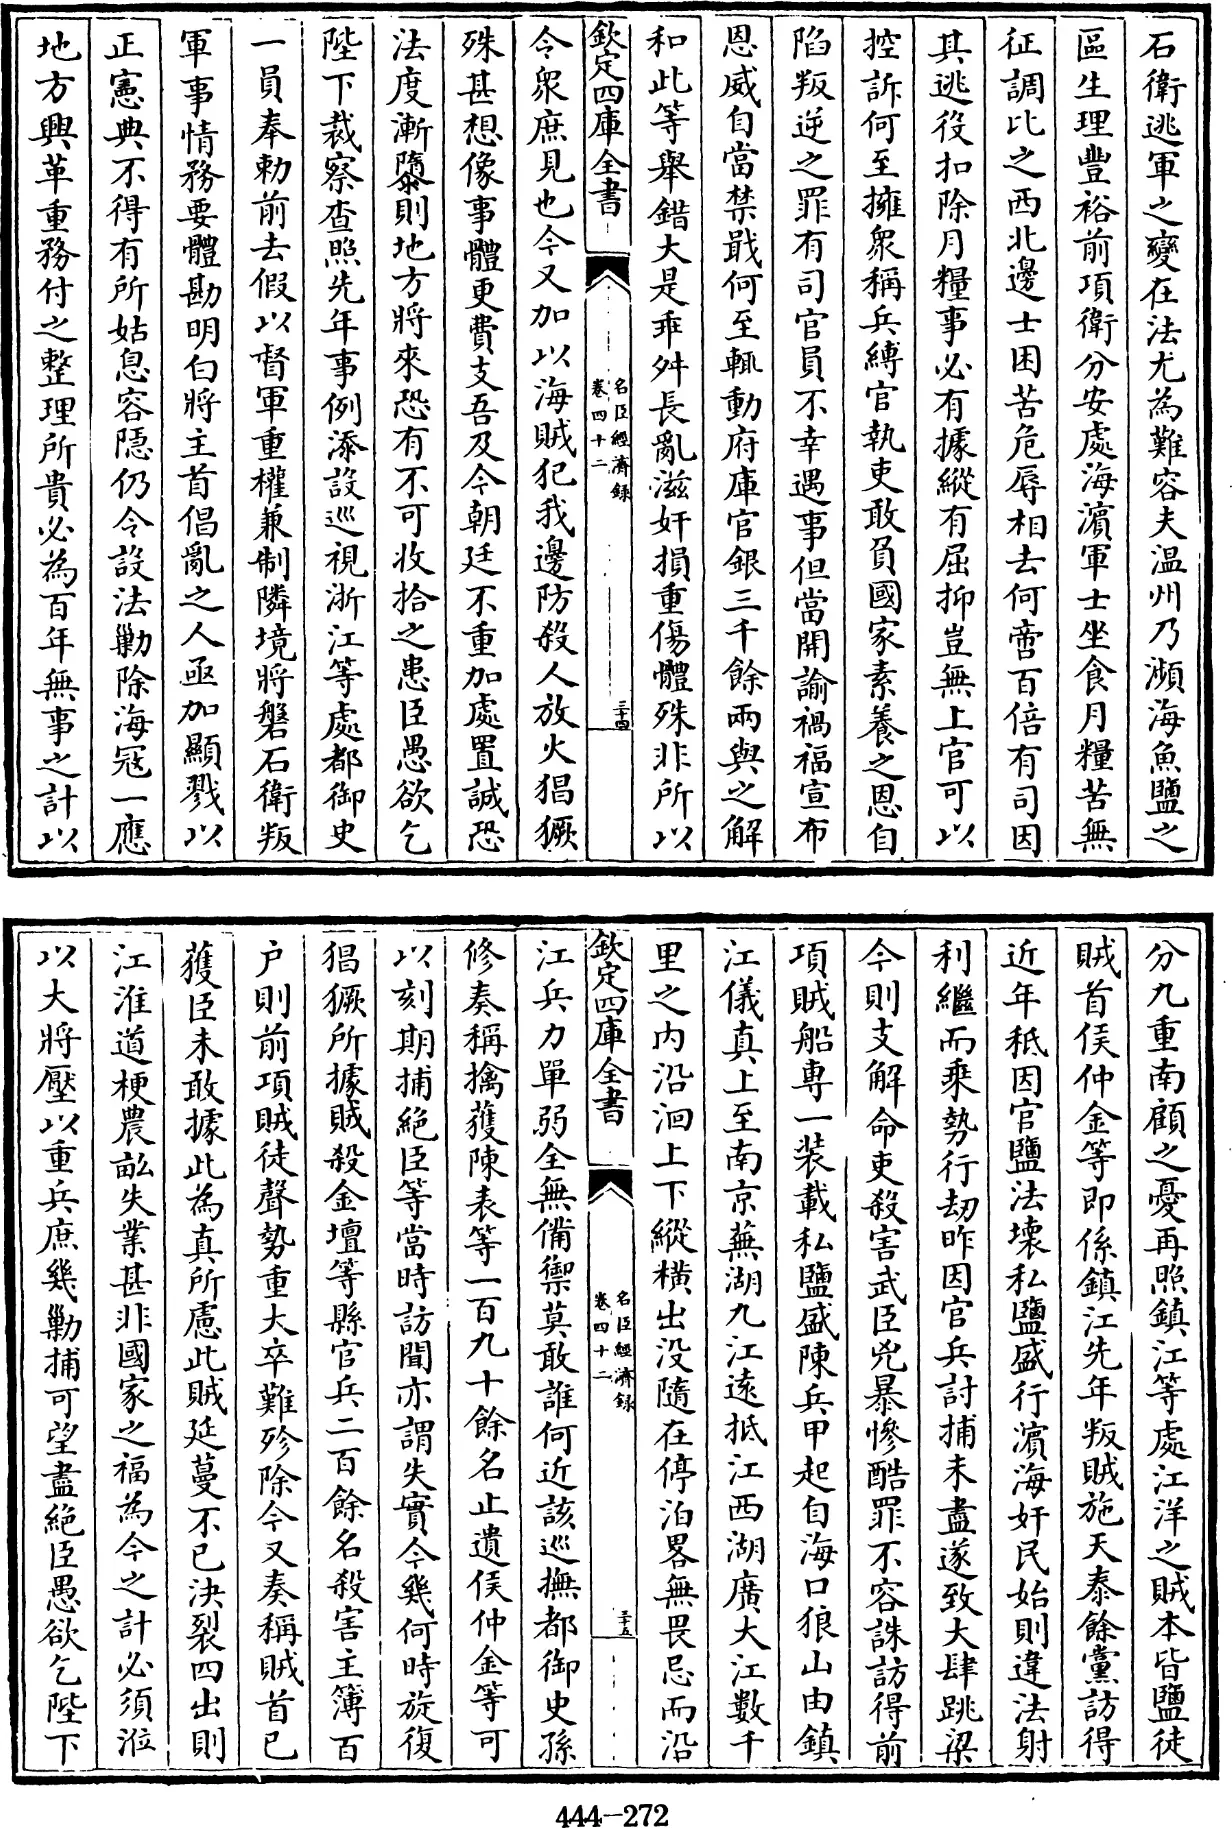 石衛逃軍之變在法尤為難容夫温州乃瀕海魚鹽之
區生理豐裕前項衛分安處海濵軍士坐食月糧苦無
征調比之西北邊士困苦危辱相去何啻百倍有司因
其逃役扣除月糧事必有據縱有屈抑豈無上官可以
控訴何至擁衆稱兵縛官執吏敢負國家素養之恩自
陷叛逆之罪有司官員不幸遇事但當開諭禍福宣布
恩威自當禁戢何至輒動府庫官銀三千餘兩與之解
和此等舉錯大是乖舛長亂滋奸損重傷體殊非所以
欽定四庫全書
名臣經濟録
卷四十二
三十四
令衆庶見也今又加以海賊犯我邊防殺人放火猖獗
殊甚想像事體更費支吾及今朝廷不重加處置誠恐
法度漸隳則地方將來恐有不可收拾之患臣愚欲乞
陛下裁察查照先年事例添設巡視浙江等處都御史
一員奉勅前去假以督軍重權兼制隣境將磐石衛叛
軍事情務要體勘明白將主首倡亂之人亟加顯戮以
正憲典不得有所姑息容隠仍令設法勦除海冦一應
地方興革重務付之整理所貴必為百年無事之計以
分九重南顧之憂再照鎮江等處江洋之賊本皆鹽徒
賊首侯仲金等即係鎮江先年叛賊施天泰餘黨訪得
近年秪因官鹽法壊私鹽盛行濵海奸民始則違法射
利繼而乘勢行刼昨因官兵討捕未盡遂致大肆跳梁
今則支解命吏殺害武臣兇暴慘酷罪不容誅訪得前
項賊船専一装載私鹽盛陳兵甲起自海口狼山由鎮
江儀真上至南京蕪湖九江逺抵江西湖廣大江數千
里之内沿洄上下縱横出没隨在停泊畧無畏忌而沿
欽定四庫全書
名臣經濟録
卷四十二
三十五
江兵力單弱全無備禦莫敢誰何近該巡撫都御史孫
修奏稱擒獲陳表等一百九十餘名止遺侯仲金等可
以刻期捕絶臣等當時訪聞亦謂失實今幾何時旋復
猖獗所據賊殺金壇等縣官兵二百餘名殺害主簿百
户則前項賊徒聲勢重大卒難殄除今又奏稱賊首已
獲臣未敢據此為真所慮此賊延蔓不已決裂四出則
江淮道梗農畝失業甚非國家之福為今之計必須涖
以大將壓以重兵庶幾勦捕可望盡絶臣愚欲乞陛下
444-272